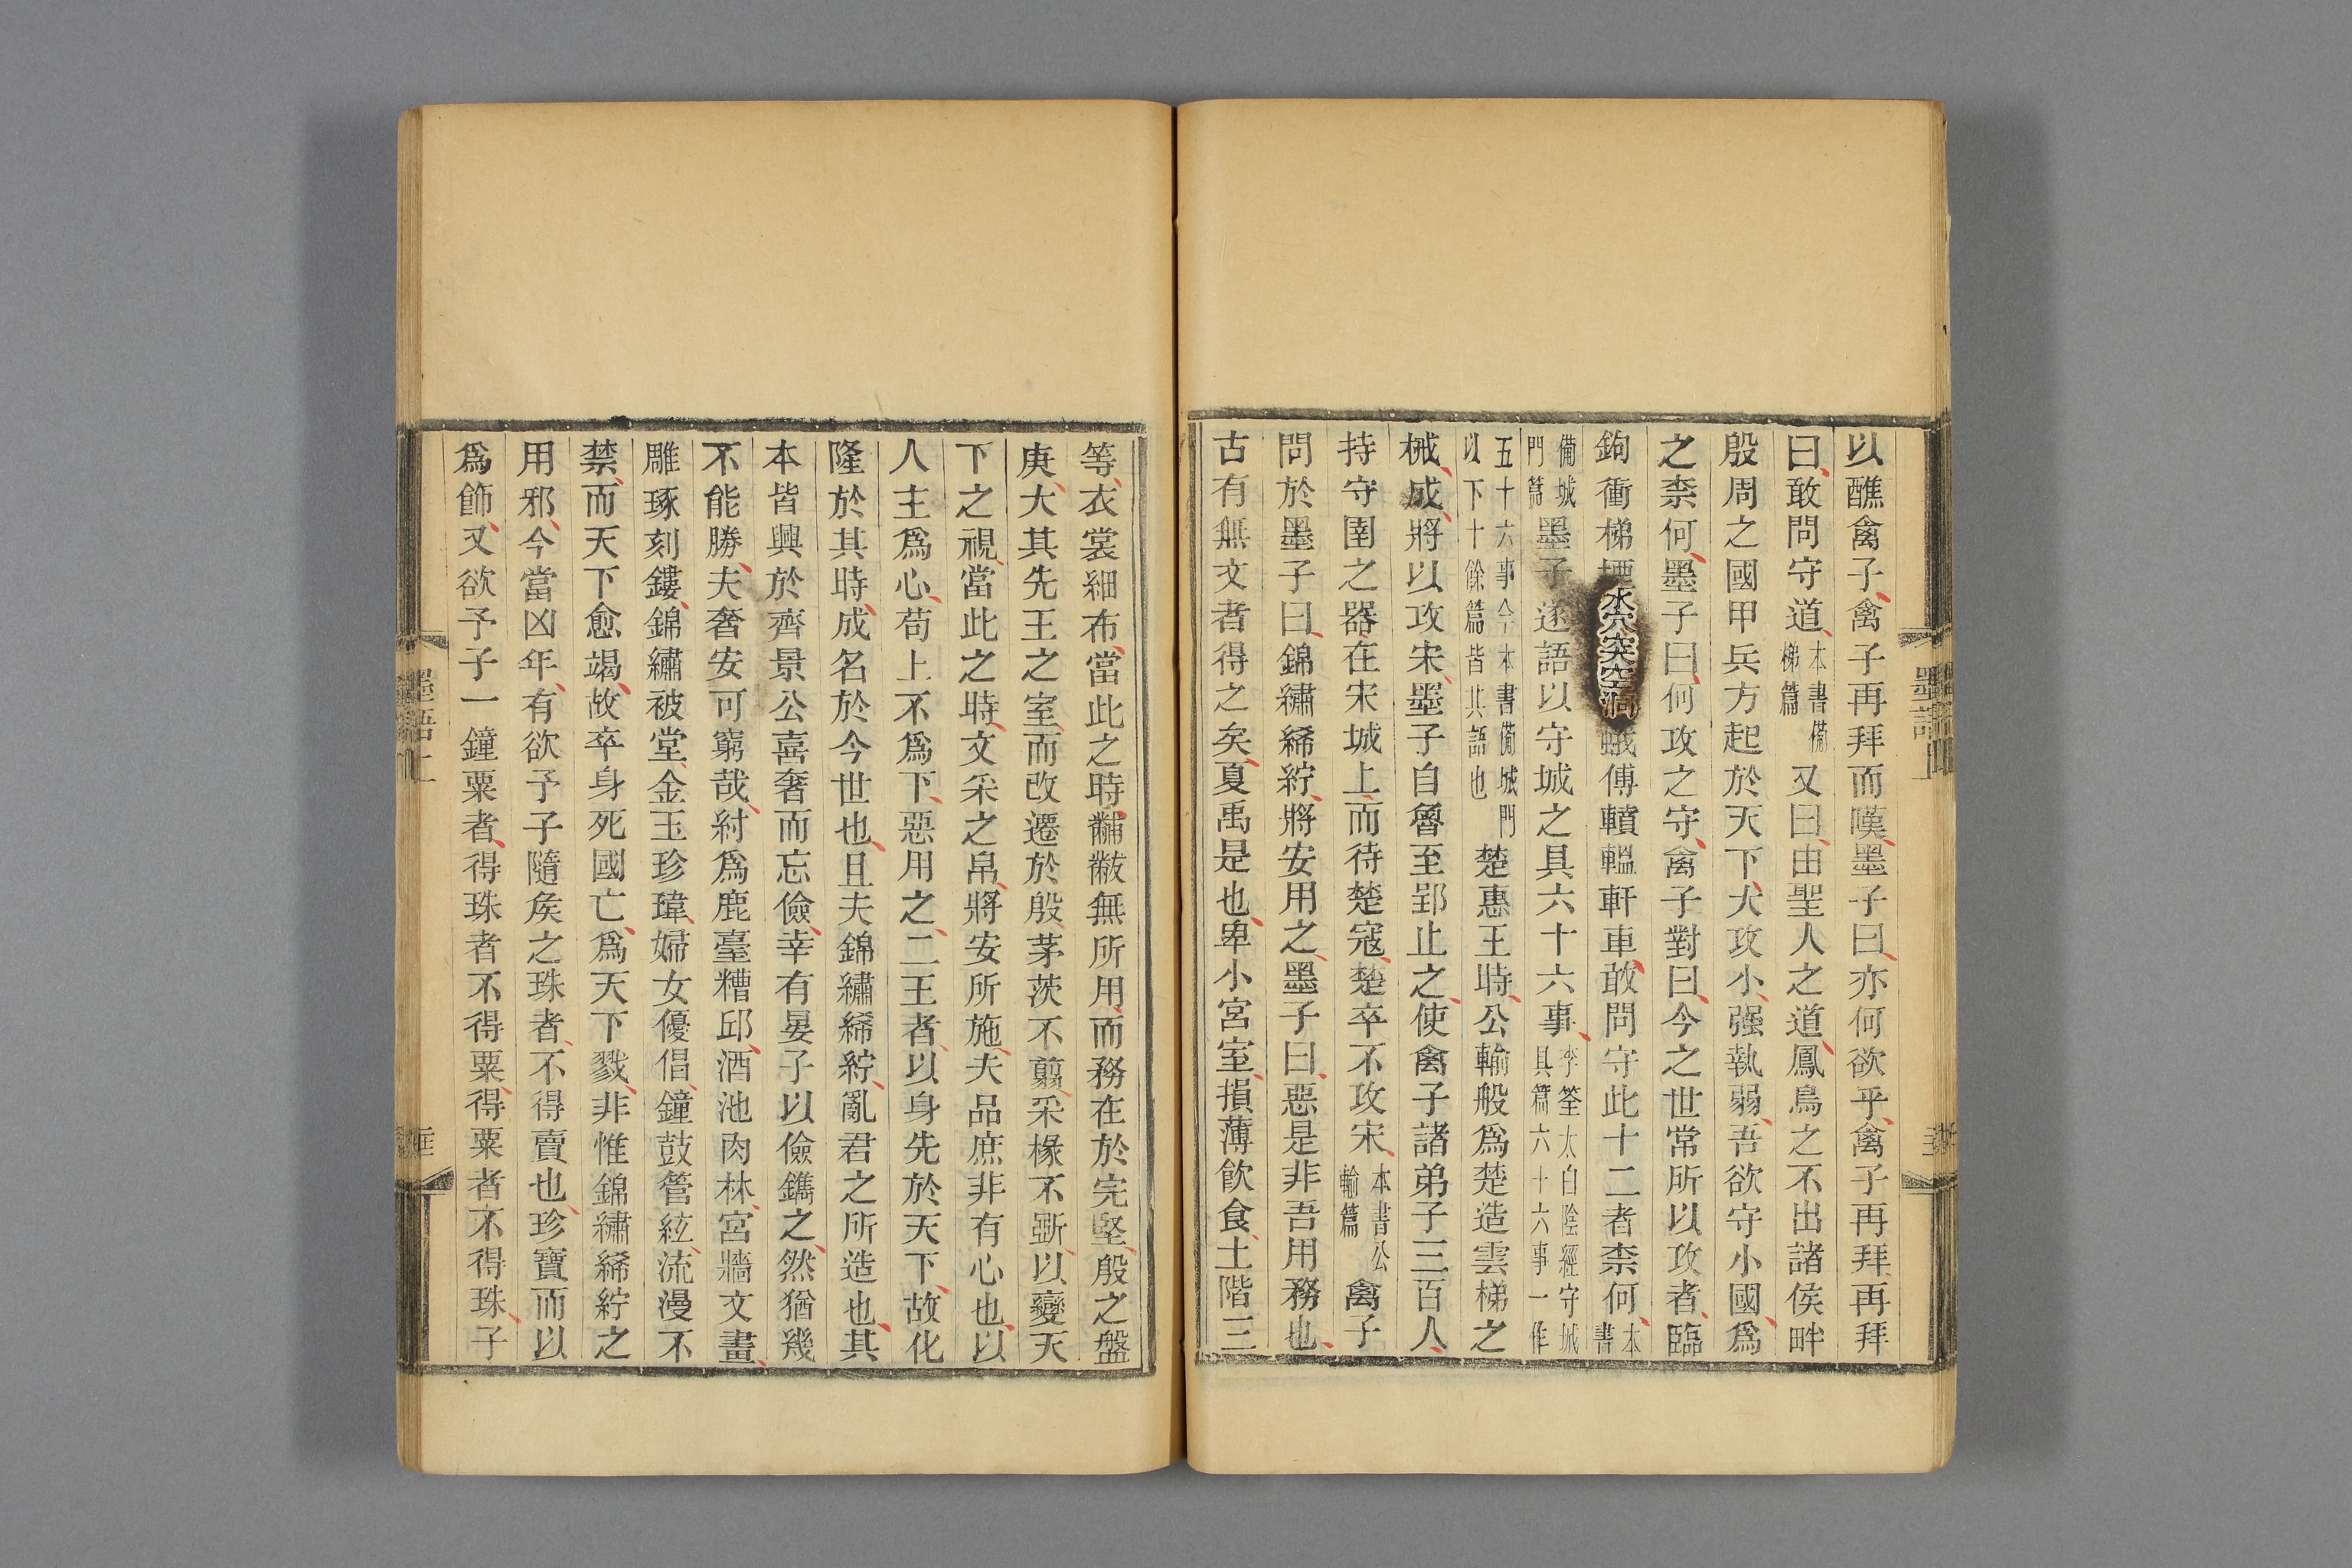 以醮禽子禽子再拜而嘆墨子曰亦何欲乎禽子再拜再拜
曰敢問守道本書備梯篇又曰由聖人之道鳳鳥之不出諸侯畔
殷周之國甲兵方起於天下大攻小强執弱吾欲守小國爲
之柰何墨子曰何攻之守禽子對曰今之世常所以攻者臨
鉤衝梯堙水穴突空洞蛾傅轒轀軒車敢問守此十二者柰何本書
備城門篇墨子遂語以守城之具六十六事李筌太白陰經守城具篇六十六事一作
五十六事今本書備城門以下十餘篇皆其語也楚惠王時公輸般爲楚造雲梯之
械成將以攻宋墨子自魯至郢止之使禽子諸弟子三百人
持守圉之器在宋城上而待楚寇楚卒不攻宋本書公輸篇禽子
問於墨子曰錦繡絺紵將安用之墨子曰惡是非吾用務也
古有無文者得之矣夏禹是也卑小宮室損薄飲食土階三
等衣裳細布當此之時黼黻無所用而務在於完堅殷之盤
庚大其先王之室而改遷於殷茅茨不翦采椽不斲以變天
下之視當此之時文采之帛將安所施夫品庶非有心也以
人主爲心苟上不爲下惡用之二王者以身先於天下故化
隆於其時成名於今世也且夫錦繡絺紵亂君之所造也其
本皆興於齊景公喜奢而忘儉幸有晏子以儉鐫之然猶幾
不能勝夫奢安可窮哉紂爲鹿臺糟邱酒池肉林宮牆文畫
雕琢刻鏤錦繡被堂金玉珍瑋婦女優倡鐘鼓管絃流漫不
禁而天下愈竭故卒身死國亡爲天下戮非惟錦繡絺紵之
用邪今當凶年有欲予子隨矦之珠者不得賣也珍寶而以
爲飾又欲予子一鐘粟者得珠者不得粟得粟者不得珠子
墨語上
墨語上